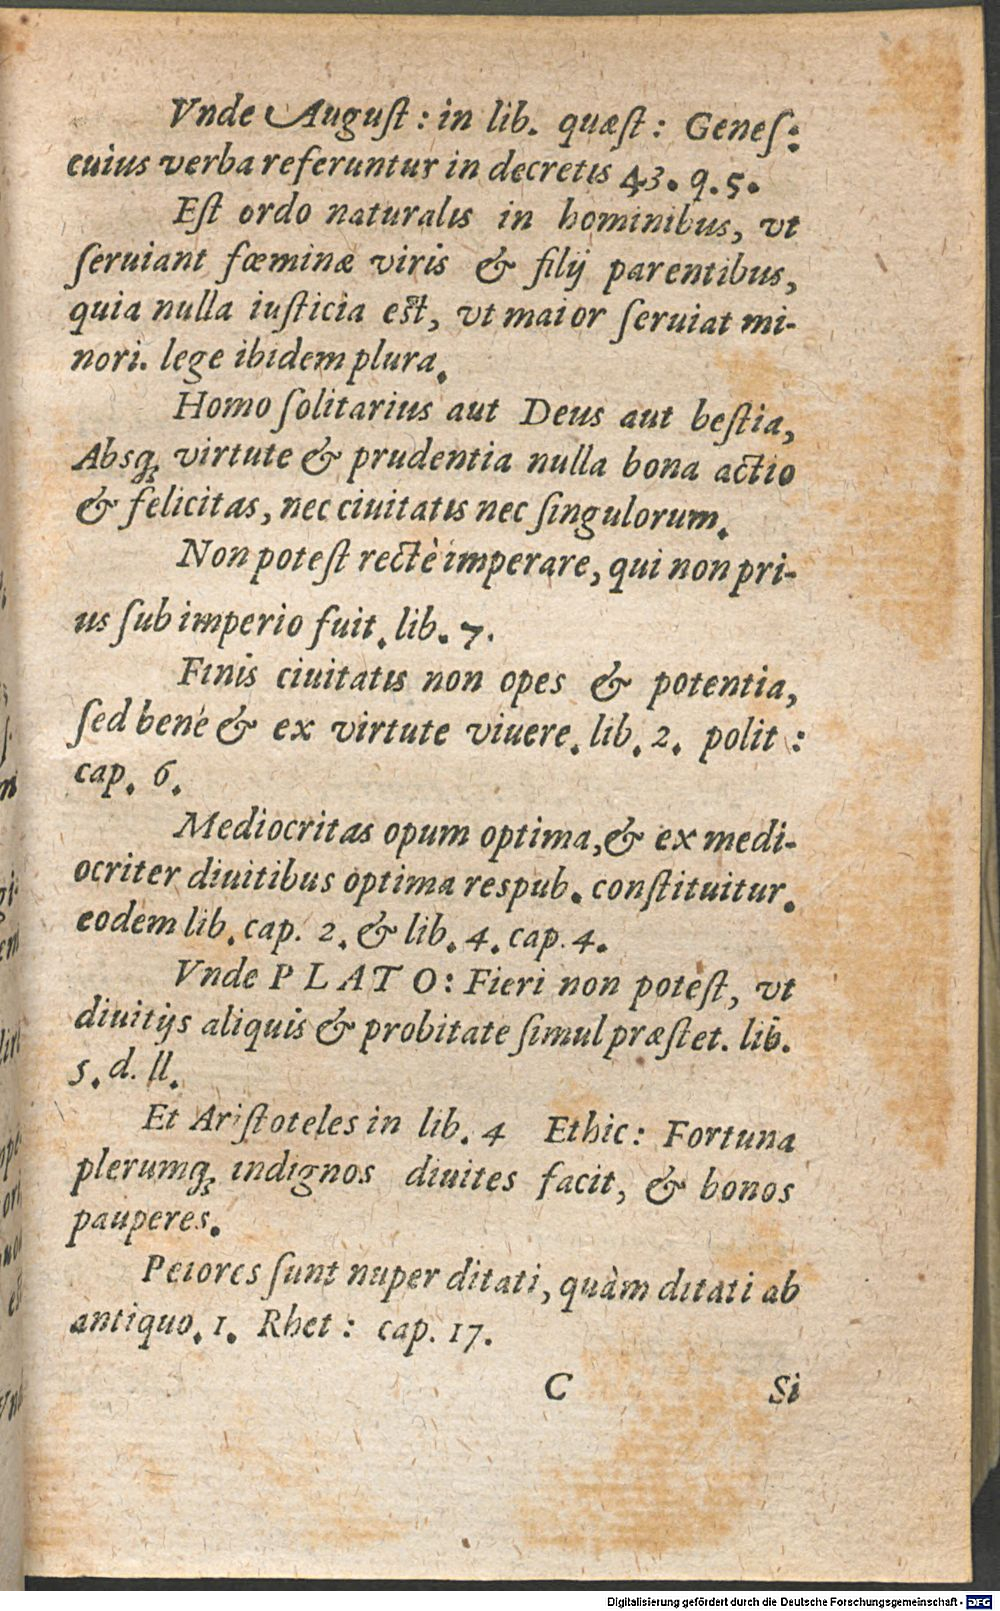 Vnde Auguſt: in lib. quæſt: Geneſ:
cuius verba referuntur in decretis 43. q. 5.
Eſt ordo naturalis in hominibus, vt
ſeruiant fœminæ viris & filij parentibus,
quia nulla iuſticia eſt, vt maior ſeruiat mi-
nori. lege ibidem plura.
Homo ſolitarius aut Deus aut beſtia,
Absq; virtute & prudentia nulla bona actio
& felicitas, nec ciuitatis nec ſingulorum.
Non poteſt rectè imperare, qui non pri-
us ſub imperio fuit. lib. 7.
Finis ciuitatis non opes & potentia,
ſed bene & ex virtute viuere. lib. 2. polit:
cap. 6.
Mediocritas opum optima, & ex medi-
ocriter diuitibus optima respub. conſtituitur.
eodem lib. cap. 2. & lib. 4. cap. 4.
Vnde PLATO: Fieri non poteſt, vt
diuitijs aliquis & probitate ſimul præſtet. lib.
5. d. ll.
Et Ariſtoteles in lib. 4 Ethic: Fortuna
plerumq; indignos diuites facit, & bonos
pauperes.
Peiores ſunt nuper ditati, quàm ditati ab
antiquo. 1. Rhet: cap. 17.
C Si
Digitalisierung gefördert durch die Deutsche Forschungsgemeinschaft - DFG